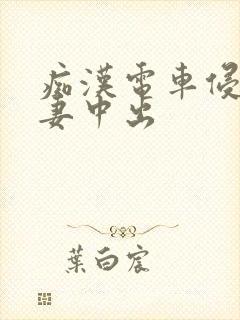 痴漢電車侵
妻中出
葉白宸